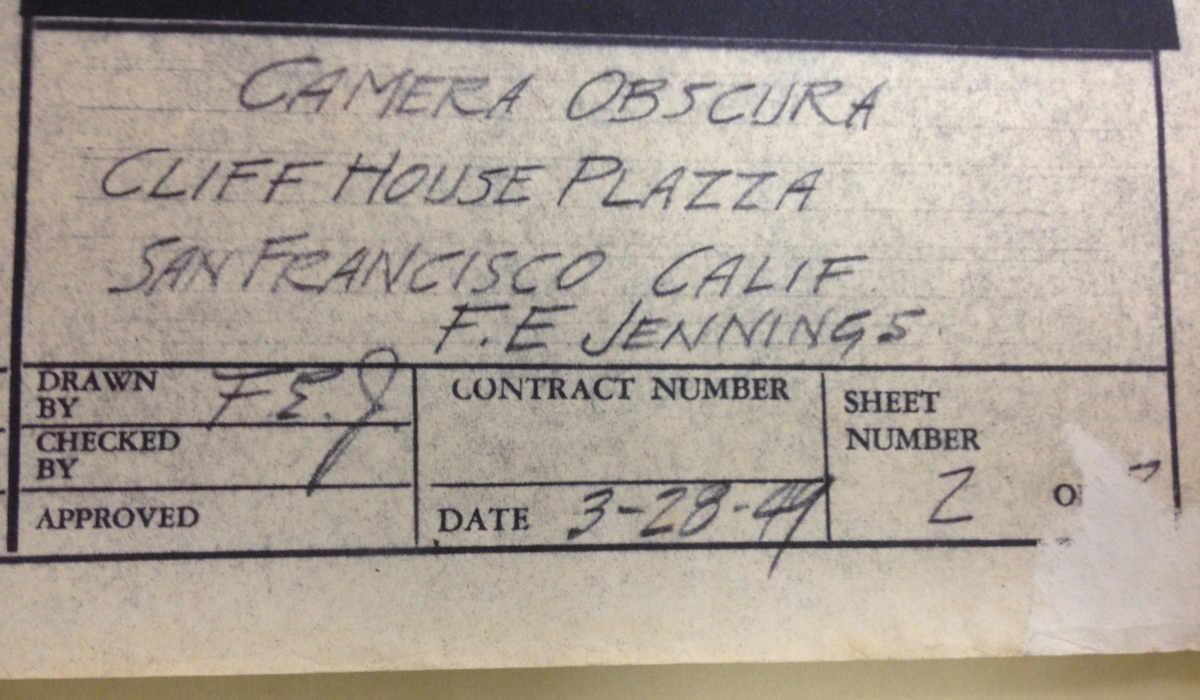 CAMERA OBSCURA
CLIFF HOUSE PLAZZA
SAN FRANCISCO CALIF
F.E JENNINGS
DRAWN BY F.E.J
CHECKED BY
APPROVED
CONTRACT NUMBER
DATE 3-28-49
SHEET NUMBER
2